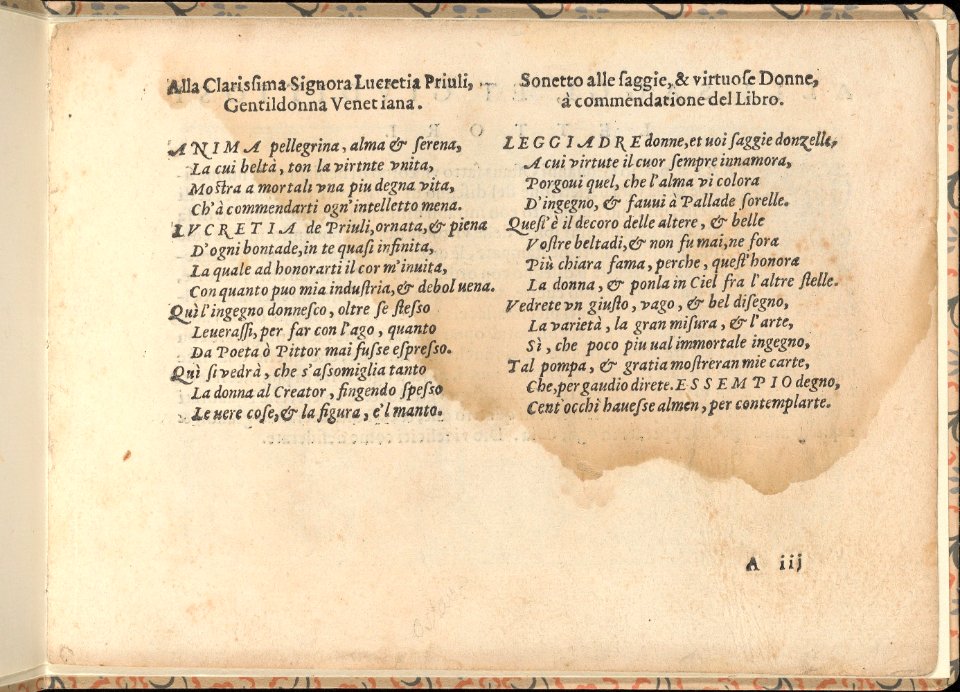 Alla Clarissima Signora Lucretia Priuli,
Gentildonna Venetiana.
ANIMA pellegrina, alma & serena,
La cui beltà, ton la virtnte vnita,
Mostra a mortali vna piu degna vita,
Ch'à commendarti ogn'intelletto mena.
LVCRETIA de Priuli, ornata, & piena
D'ogni bontade, in te quasi infinita,
La quale ad honorarti il cor m'inuita,
Con quanto puo mia industria, & debol uena.
Quì l'ingegno donnesco, oltre se stesso
Leuerassi, per far con l'ago, quanto
Da Poeta ò Pittor mai fusse espresso.
Quì si vedrà, che s'assomiglia tanto
La donna al Creator, fingendo spesso
Le uere cose, & la figura, e'l manto.
Sonetto alle saggie, & virtuose Donne,
à commendatione del Libro.
LEGGIADRE donne, et uoi saggie donzelle,
A cui virtute il cuor sempre innamora,
Porgoui quel, che l'alma vi colora
D'ingegno, & fauui à Pallade sorelle.
Quest'è il decoro delle altere, & belle
Vostre beltadi, & non fu mai, ne fora
Più chiara fama, perche, quest'honora
La donna, & ponla in Ciel fra l'altre stelle.
Vedrete vn giusto, vago, & bel disegno,
La varietà, la gran misura, & l'arte,
Sì, che poco piu ual immortale ingegno,
Tal pompa, & gratia mostreran mie carte,
Che, per gaudio direte. ESSEMPIO degno,
Cent'occhi hauesse almen, per contemplarte.
A iij